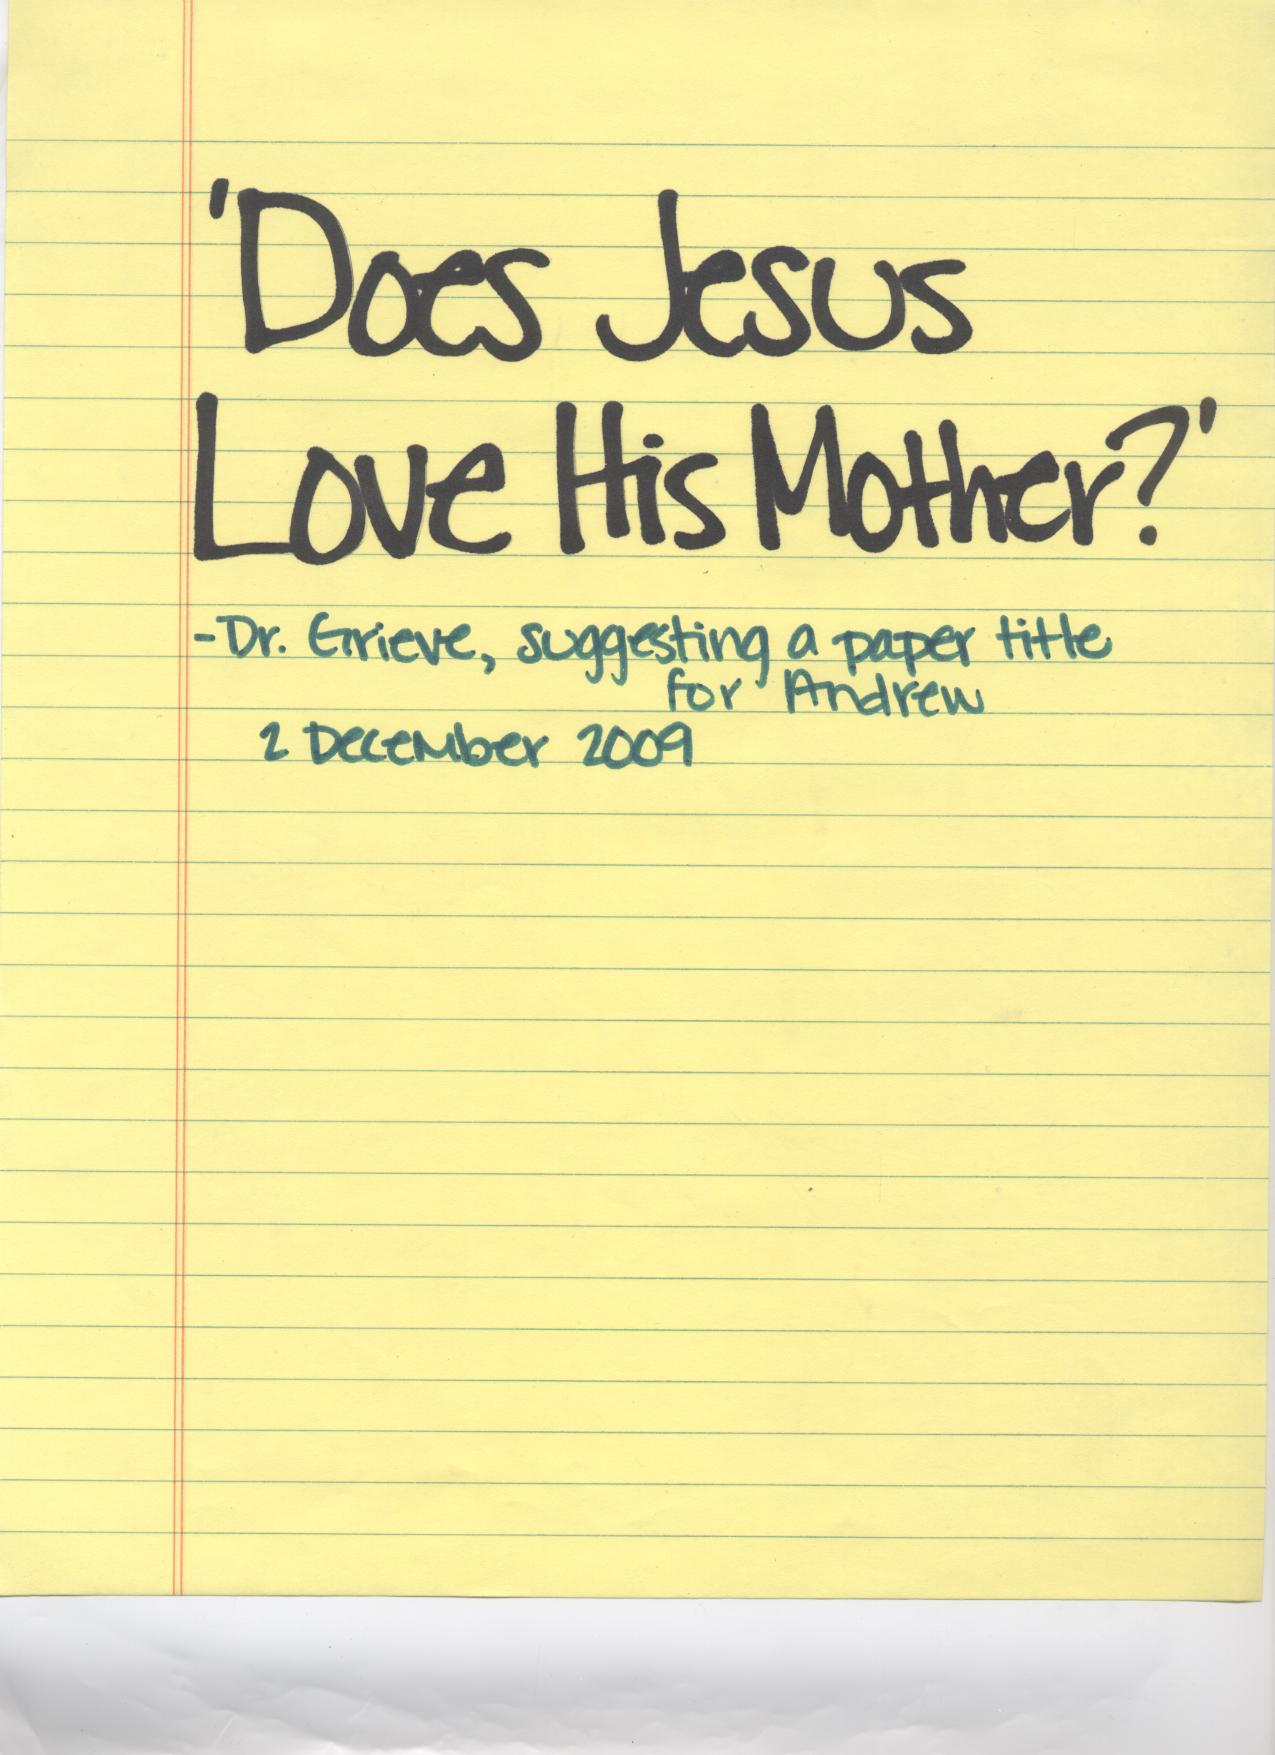 'Does Jesus
Love His Mother?'
-Dr. Grieve, suggesting a paper title
for Andrew
2 December 2009